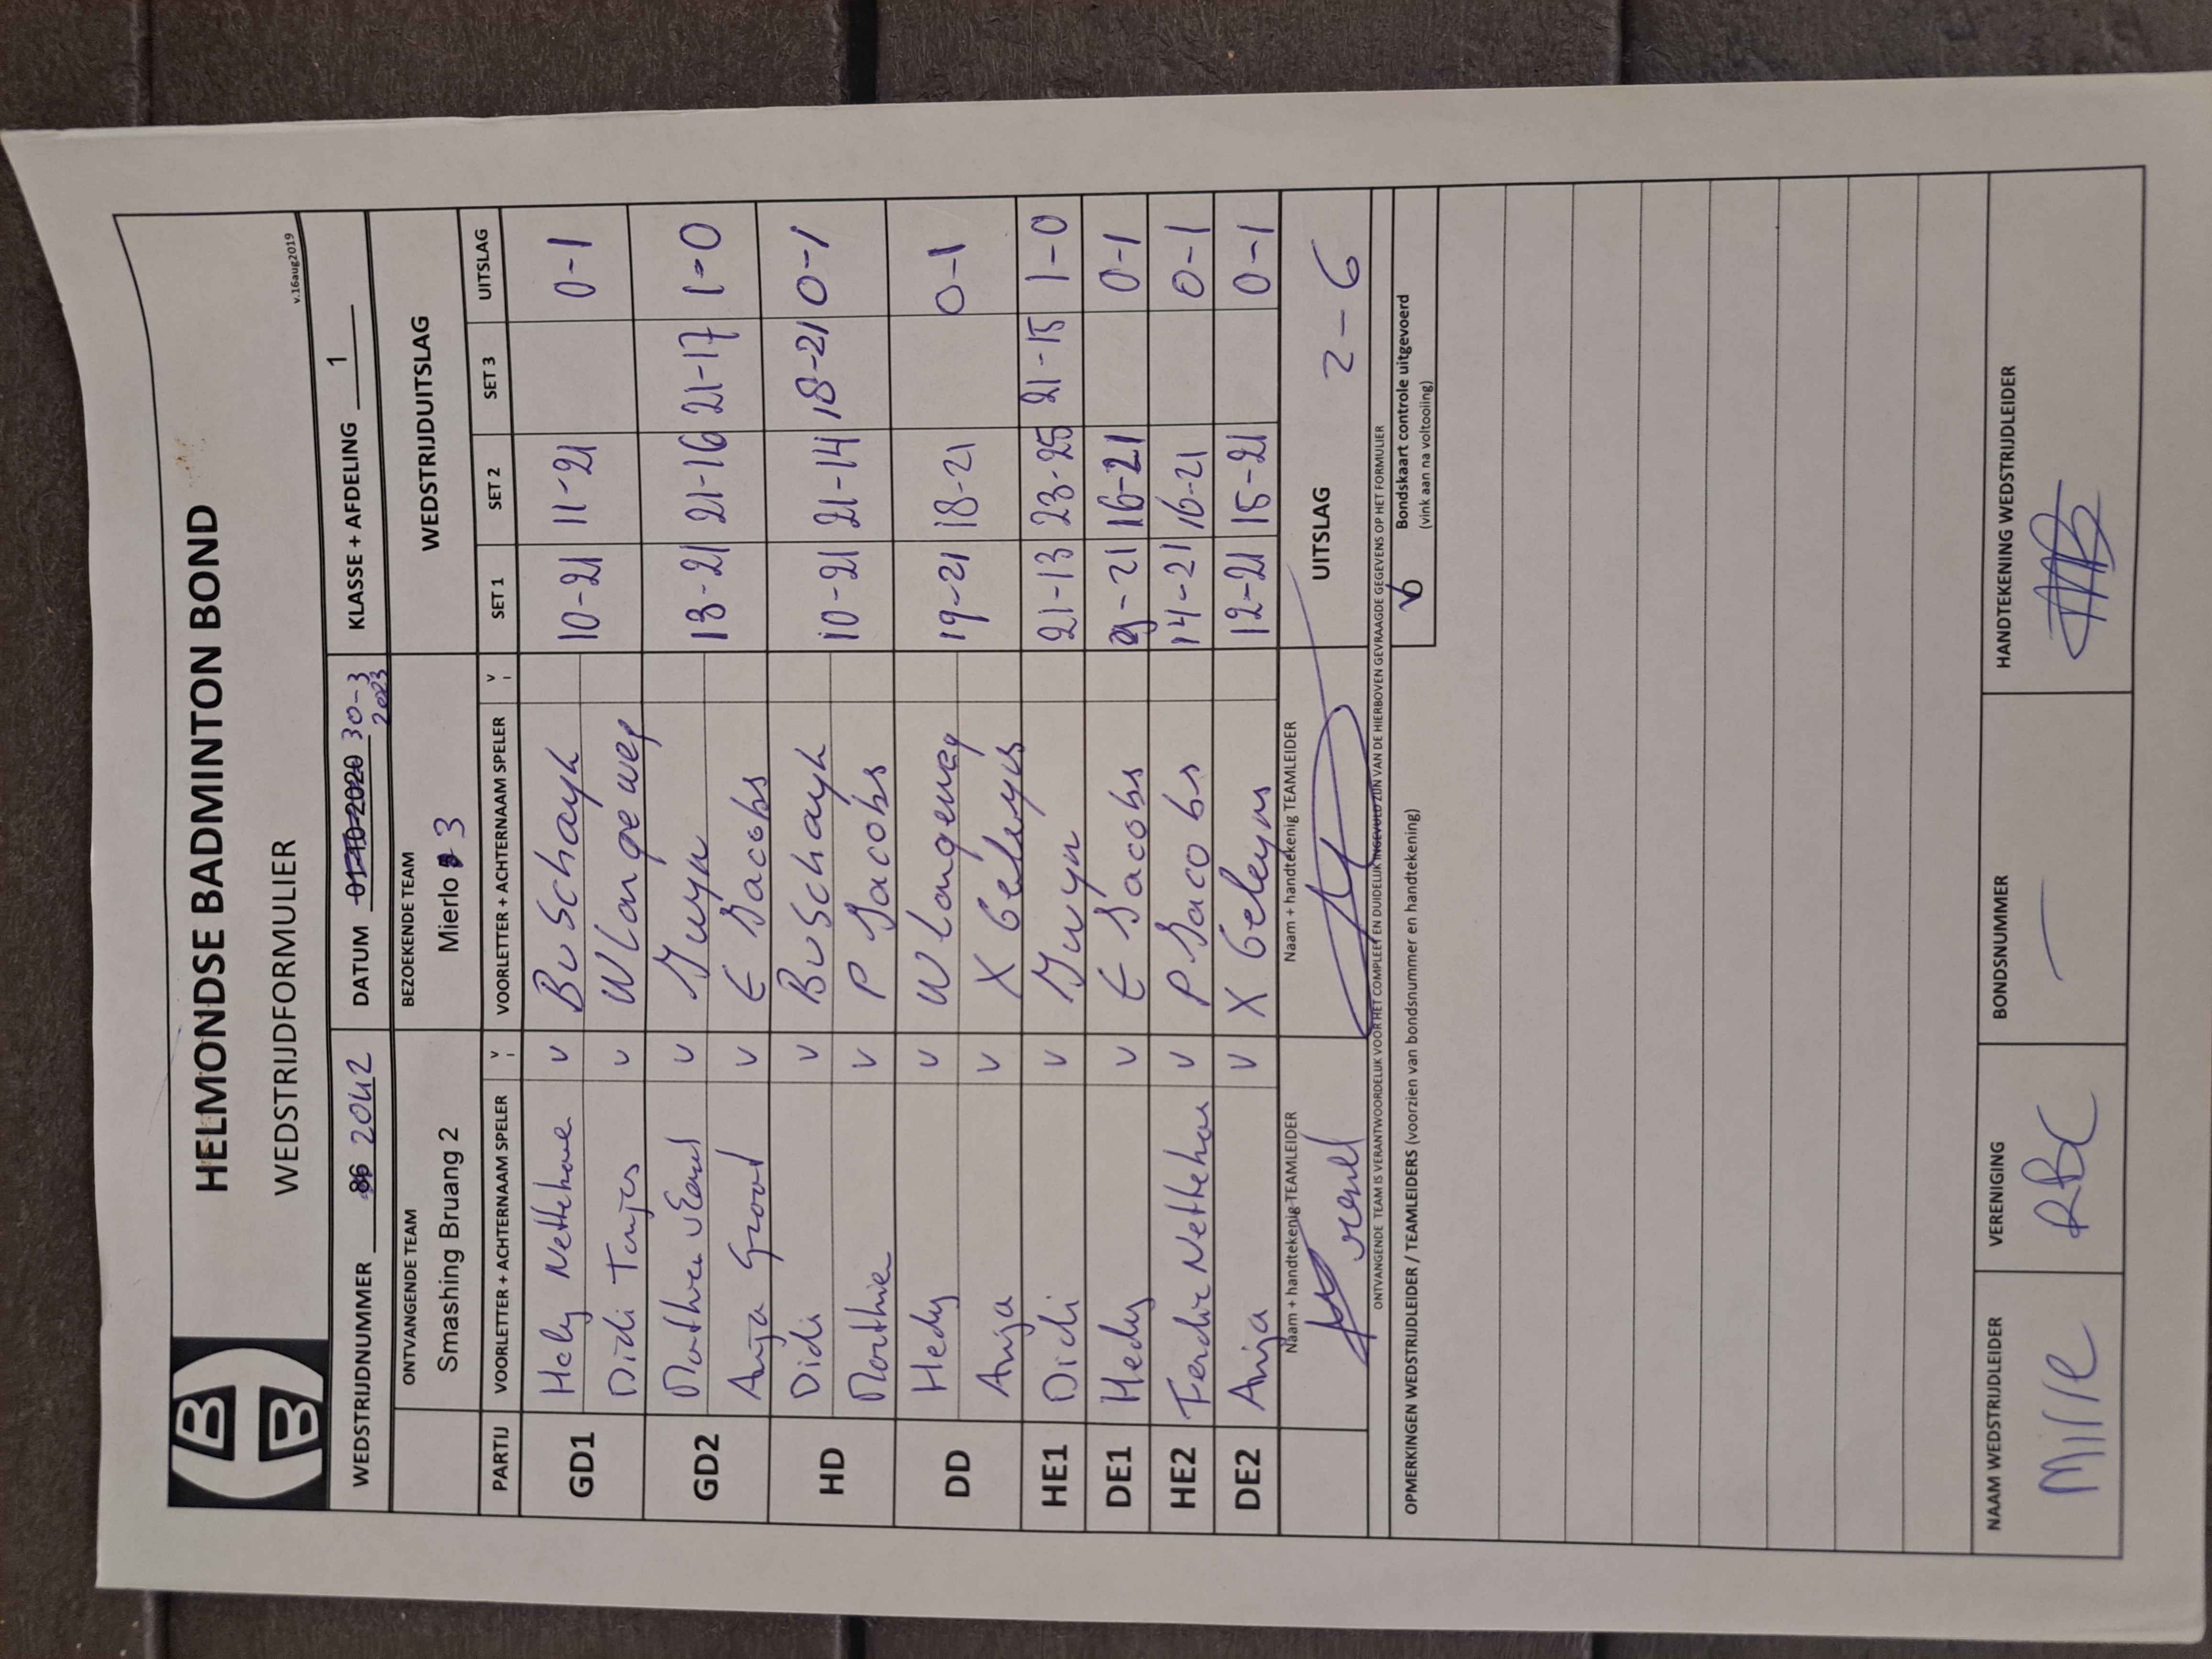 HELMONDSE BADMINTON BOND
WEDSTRIJDFORMULIER
v.16aug2019
WEDSTRIJDNUMMER 86 2042 DATUM 01-10-2020 30-3 2023 KLASSE + AFDELING 1
ONTVANGENDE TEAM BEZOEKENDE TEAM WEDSTRIJDUITSLAG
Smashing Bruang 2 Mierlo 3
PARTIJ VOORLETTER + ACHTERNAAM SPELER V VOORLETTER + ACHTERNAAM SPELER V SET 1 SET 2 SET 3 UITSLAG
GD1 Hedy v B v Schayk 10-21 11-21 0-1
Didi Tanjes v W Langeweg
GD2 v 13-21 21-16 21-17 1-0
Anja Grood v E Jacobs
HD Didi v B v Schayk 10-21 21-14 18-21 0-1
Mathieu v P Jacobs
DD Hedy v W Langeweg 19-21 18-21 0-1
Anja v X Geleyns
HE1 Didi v 21-13 23-25 21-15 1-0
DE1 Hedy v E Jacobs -21 16-21 0-1
HE2 v P Jacobs 14-21 16-21 0-1
DE2 Anja v X Geleyns 12-21 15-21 0-1
Naam + handtekenig TEAMLEIDER Naam + handtekenig TEAMLEIDER UITSLAG 2-6
ONTVANGENDE TEAM IS VERANTWOORDELIJK VOOR HET COMPLEET EN DUIDELIJK INGEVULD ZIJN VAN DE HIERBOVEN GEVRAAGDE GEGEVENS OP HET FORMULIER
OPMERKINGEN WEDSTRIJDLEIDER / TEAMLEIDERS (voorzien van bondsnummer en handtekening) Bondskaart controle uitgevoerd
(vink aan na voltooling)
NAAM WEDSTRIJDLEIDER VERENIGING BONDSNUMMER HANDTEKENING WEDSTRIJDLEIDER
RBC —